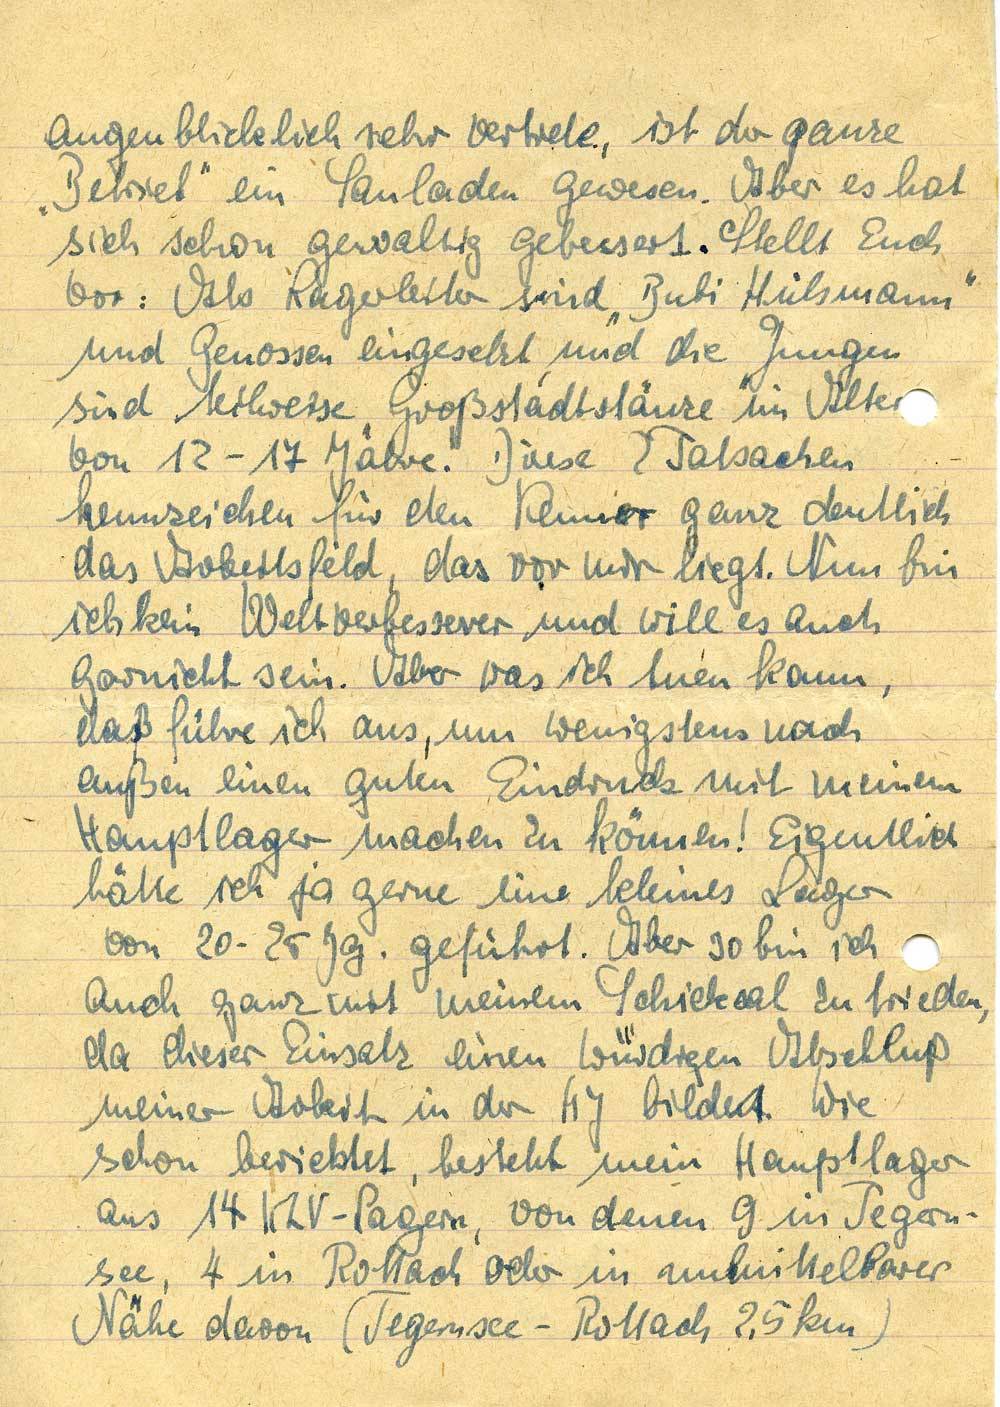 augenblicklich sehr vertrete, ist der ganze
„Betrieb" ein Sauladen gewesen. Aber es hat
sich schon gewaltig gebessert. Stellt Euch
vor: Als Lagerleiter sind „Bubi Hülsmann"
und Genossen eingesetzt und die Jungen
sind teilweise „Großstadtstänze" im Alter
von 12 - 17 Jahre. Diese 2 Tatsachen
kennzeichen für den Kenner ganz deutlich
das Arbeitsfeld, das vor mir liegt. Nun bin
ich kein Weltverbesserer und will es auch
garnicht sein. Aber was ich tuen kann,
daß führe ich aus, um wenigstens nach
außen einen guten Eindruck mit meinem
Hauptlager machen zu können! Eigentlich
hätte ich ja gerne eine kleines Lager
von 20 - 25 Jg. geführt. Aber so bin ich
auch ganz mit meinem Schicksal zufrieden,
da dieser Einsatz einen würdigen Abschluß
meiner Arbeit in der HJ bildet. Wie
schon berichtet, besteht mein Hauptlager
aus 14 KLV-Lagern, von denen 9 in Tegern-
see, 4 in Rottach oder in unmittelbarer
Nähe davon (Tegernsee - Rottach 2,5 km)